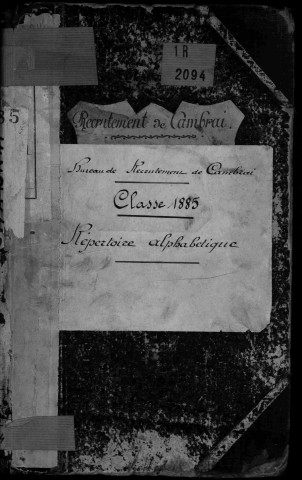 1R
2094
Recrutement de Cambrai.
5
Bureau de Recrutement de Cambrai
Classe 1885
Répertoire alphabétique